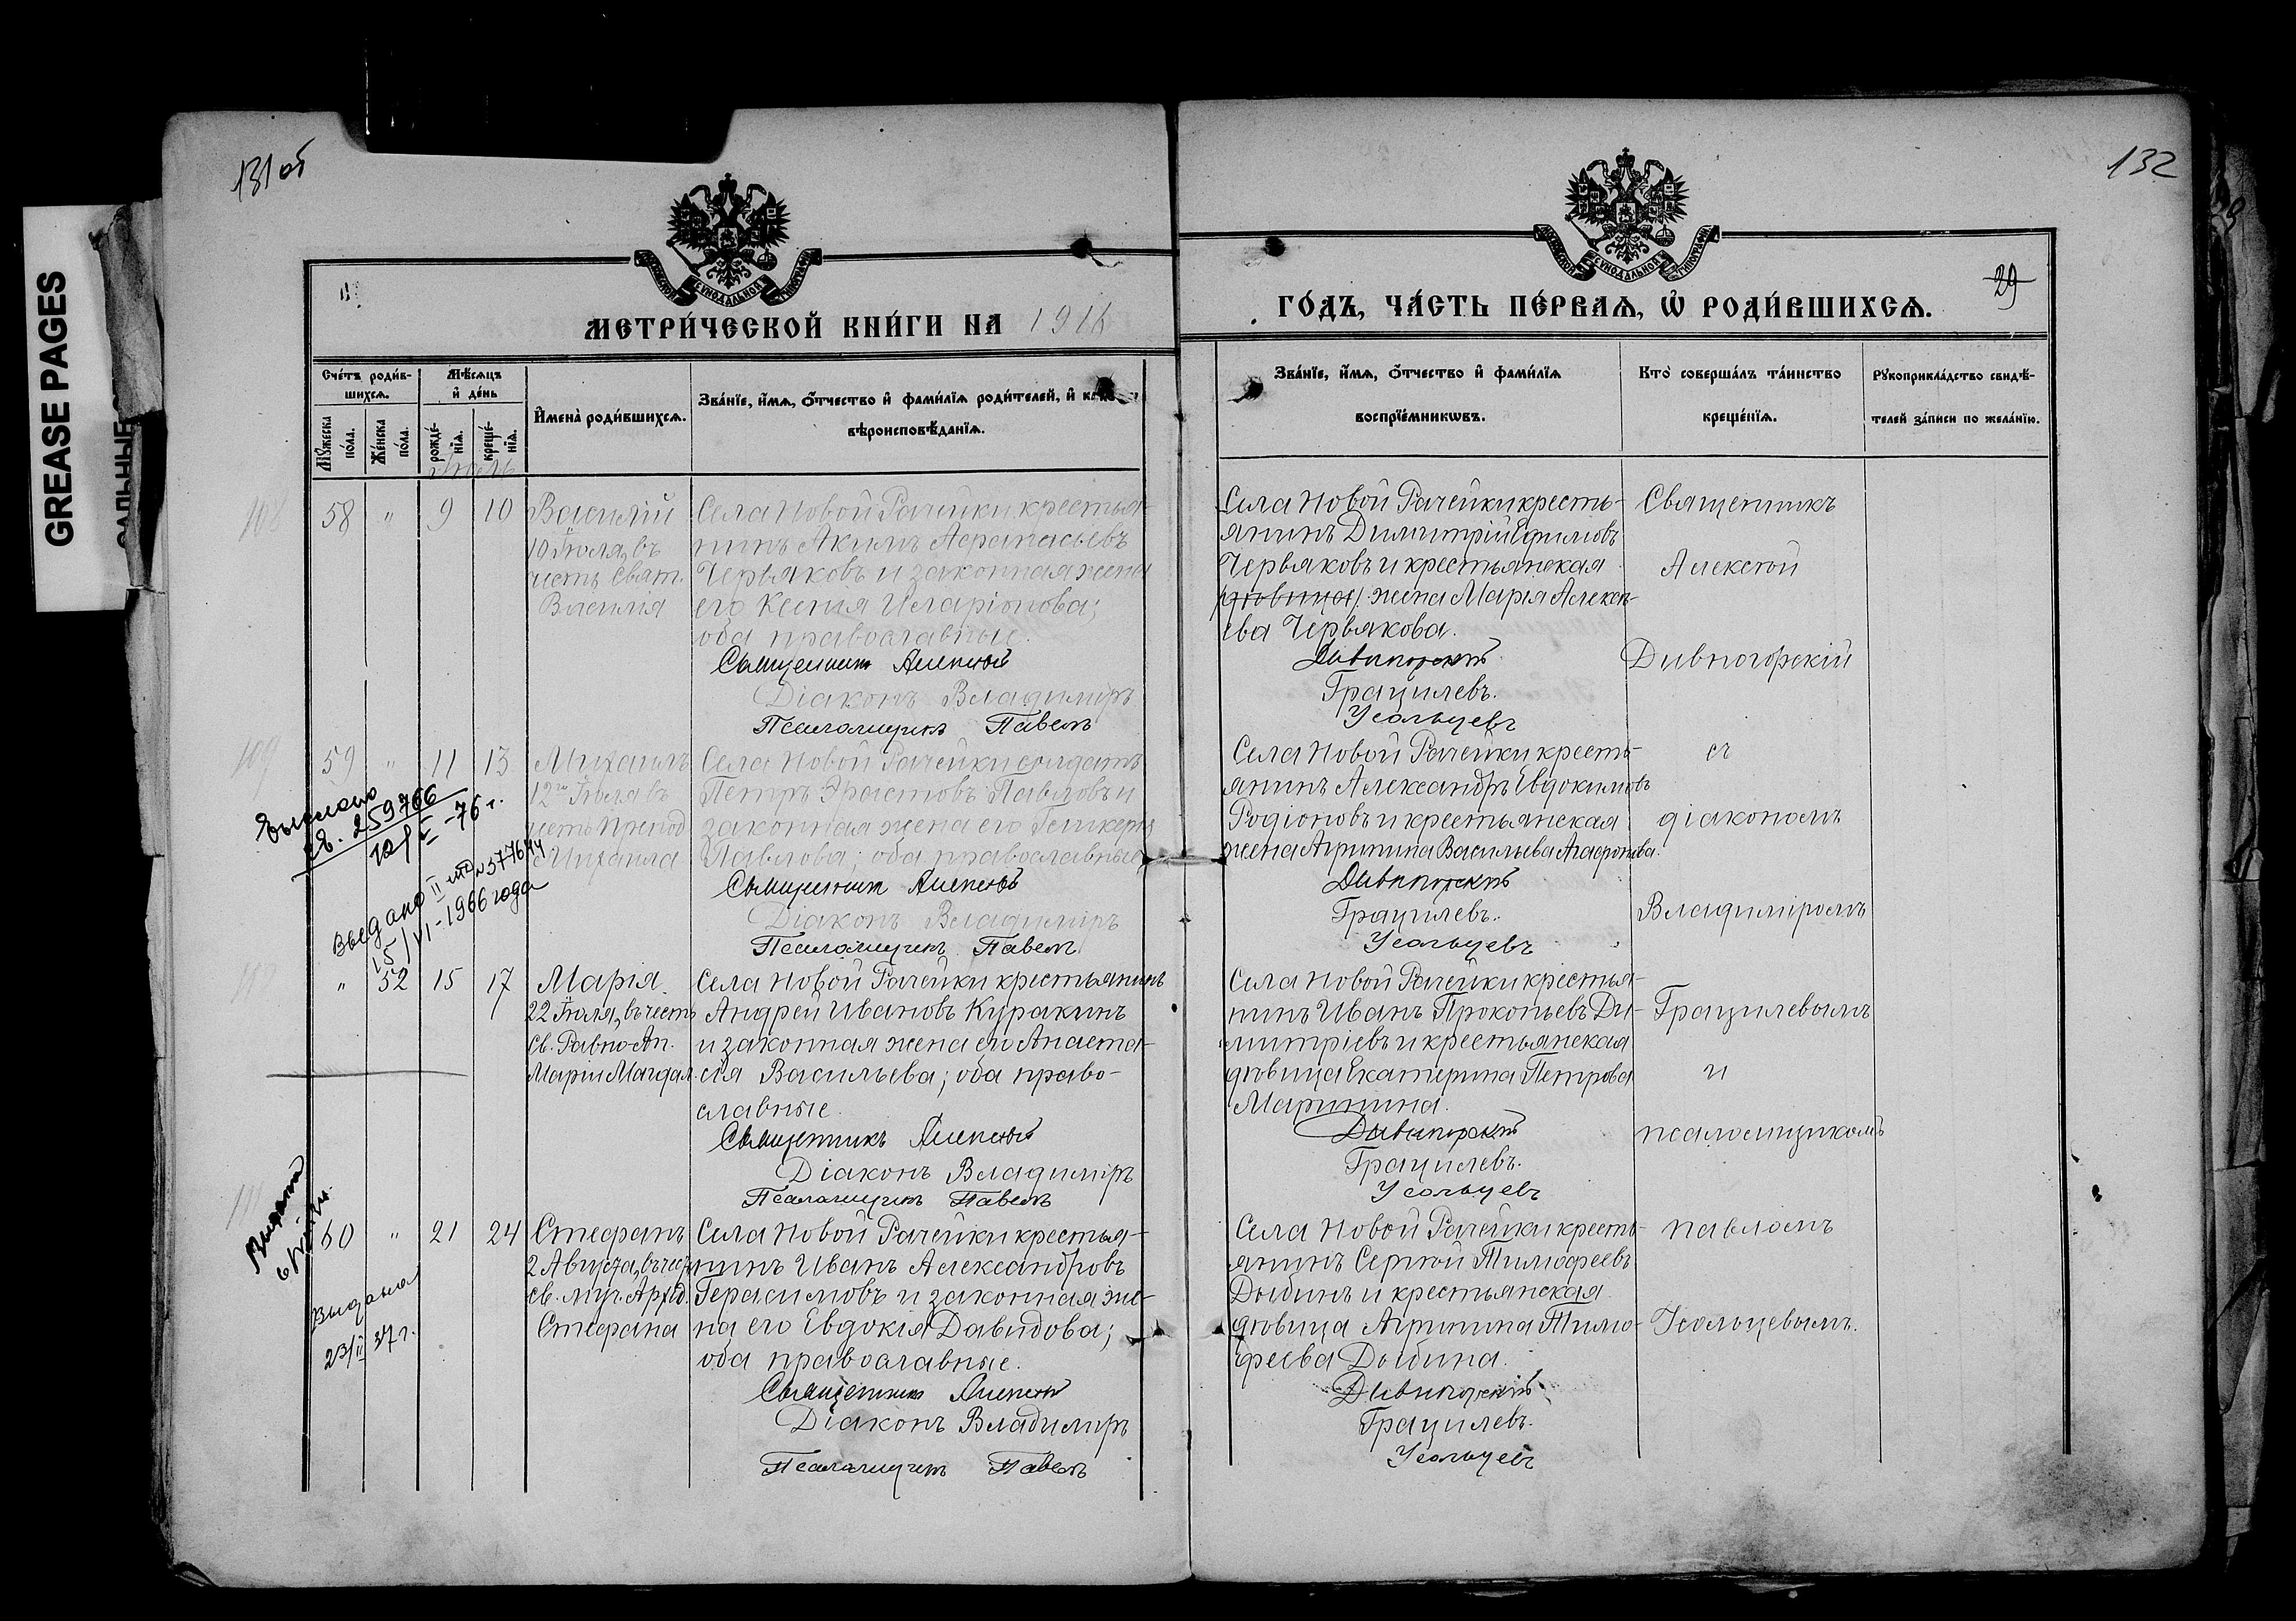 131 об
132
GREASE PAGES
МЕТРИ́ЧЕСКОЙ КНИ́ГИ НА 1916
ГО́ДЪ, ЧА́СТЬ ПЕ́РВАѦ, Ѡ҆ РОДИ́ВШИХСѦ.
29
Сче́тъ роди́в-
шихсѧ.
Мѣ́сѧцъ
и҆ де́нь
Мꙋ́жеска
по́ла.
Же́нска
по́ла.
рожде́-
нїѧ.
креще́-
нїѧ.
И҆мена̀ роди́вшихсѧ.
Зва́нїе, и҆́мѧ, ѻ҆́тчество и҆ фами́лїѧ роди́телей, и҆
вѣроисповѣ́данїѧ.
Зва́нїе, и҆́мѧ, ѻ҆́тчество и҆ фами́лїѧ
воспрїе́мникѡвъ.
Кто̀ соверша́лъ та́инство
креще́нїѧ.
Рꙋкоприкла́дство свидѣ́-
телей за́писи по жела́нїю.
Іюль
108
58 " 9 10
Василій
10 Іюля, въ
честь Свят.
Василія
Села Новой Рачейки крестья-
нинъ Акимъ Афанасьевъ
Червяковъ и законная жена
его Ксенія Иларіонова;
оба православные.
Священникъ Алексій
Діаконъ Владиміръ
Псаломщикъ Павелъ
Села Новой Рачейки кресть-
янинъ Димитрій Ефимовъ
Червяковъ и крестьянская
жена Марія Алексѣ-
ева Червякова.
Дивногорскій
Грацилевъ.
Усольцевъ
Священникъ
Алексій
Дивногорскій
109
59 " 11 13
Михаилъ
12го Іюля въ
честь Препод.
Михаила
Села Новой Рачейки солдатъ
Петръ Эрастовъ Павловъ и
законная жена его Гликерія
Павлова; оба православные
Священникъ Алексій
Діаконъ Владиміръ
Псаломщикъ Павелъ
Села Новой Рачейки кресть-
янинъ Александръ Евдокимовъ
Родіоновъ и крестьянская
жена Агриппина Васильева Агафонова.
Дивногорскій
Грацилевъ.
Усольцевъ
съ
діакономъ
Владиміромъ
Выслано
св. 259766
-76 г.
Выдано II
15/VI-1966 года
110
" 52 15 17
Марія
22 Іюля, въ честь
Св. Равно-Ап.
Маріи Магдал.
Села Новой Рачейки крестьянинъ
Андрей Ивановъ Куракинъ
и законная жена его Анаста-
сія Васильева; оба право-
славные.
Священникъ Алексій
Діаконъ Владиміръ
Псаломщикъ Павелъ
Села Новой Рачейки крестья-
нинъ Иванъ Прокопьевъ Ди-
митріевъ и крестьянская
дѣвица Екатерина Петрова
Маринина.
Дивногорскій
Грацилевъ.
Усольцевъ
Грацилевымъ
и
псаломщикомъ
111
60 " 21 24
Стефанъ
2 Августа, въ честь
Св. муч. Архід.
Стефана
Села Новой Рачейки крестья-
нинъ Иванъ Александровъ
Герасимовъ и законная же-
на его Евдокія Давидова;
оба православные.
Священникъ Алексій
Діаконъ Владиміръ
Псаломщикъ Павелъ
Села Новой Рачейки кресть-
янинъ Сергій Тимофеевъ
Дыбинъ и крестьянская
дѣвица Агриппина Тимо-
феева Дыбина.
Дивногорскій
Грацилевъ.
Усольцевъ
Павломъ
Усольцевымъ.
Выдана
23/II 37 г.